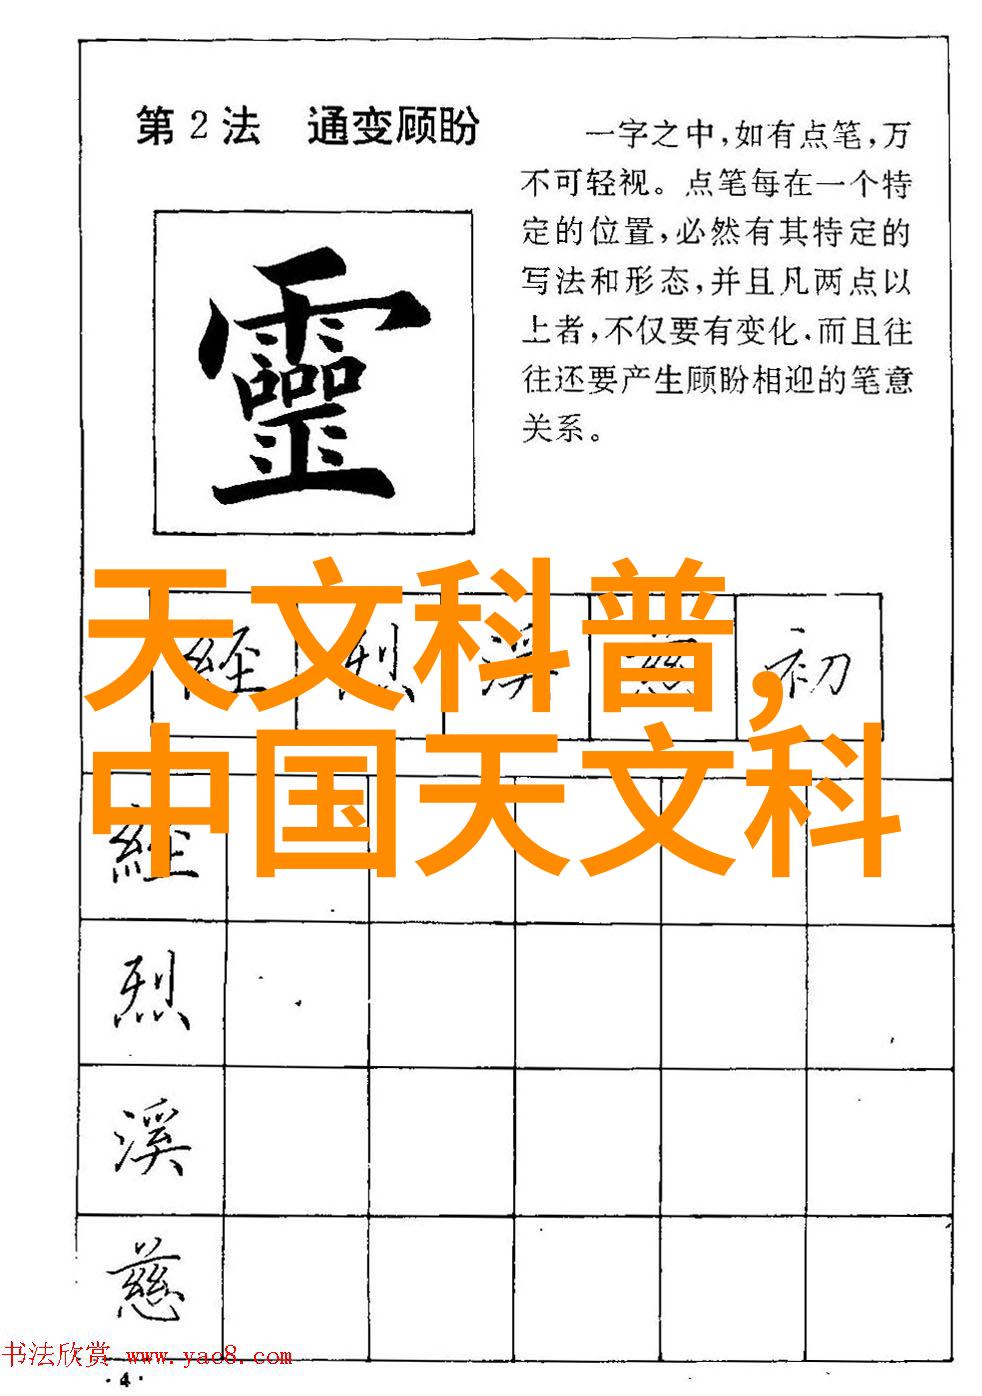 第2法 通变顾盼
一字之中,如有点笔,万
不可轻视。点笔每在一个特
定的位置,必然有其特定的
写法和形态,并且凡两点以
上者,不仅要有变化.而且往
往还要产生顾盼相迎的笔意
关系。
靈
天文科普,
中国天文科
經 烈 溪 慈 初
經
烈
溪
慈
书法欣赏 www.yac8.com
·4·